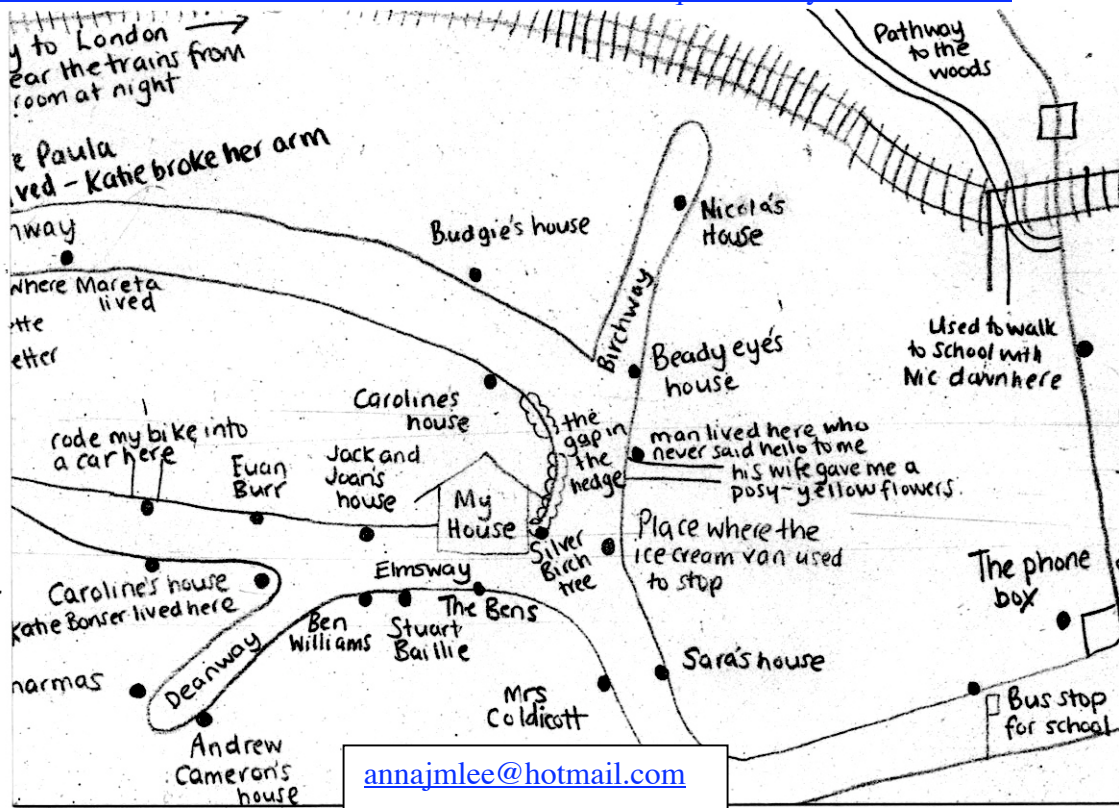 y to London
ear the trains from
room at night
Pathway
to the
woods
e Paula
ved - Katie broke her arm
Nicola's
House
Budgie's house
way
where Mareta
lived
tte
etter
Birchway
Used to walk
to school with
Nic down here
Beady eye's
house
Caroline's
house
the
gap in
the
hedge
man lived here who
never said hello to me
his wife gave me a
posy - yellow flowers.
rode my bike into
a car here
Euan
Burr
Jack and
Joan's
house
My
House
Silver
Birch
tree
Place where the
ice cream van used
to stop
The phone
box
Elmsway
Caroline's house
Katie Bonser lived here
Ben
Williams
Stuart
Baillie
The Bens
Sara's house
Deanway
harmas
Mrs
Coldicott
Bus stop
for school
Andrew
Cameron's
house
annajmlee@hotmail.com